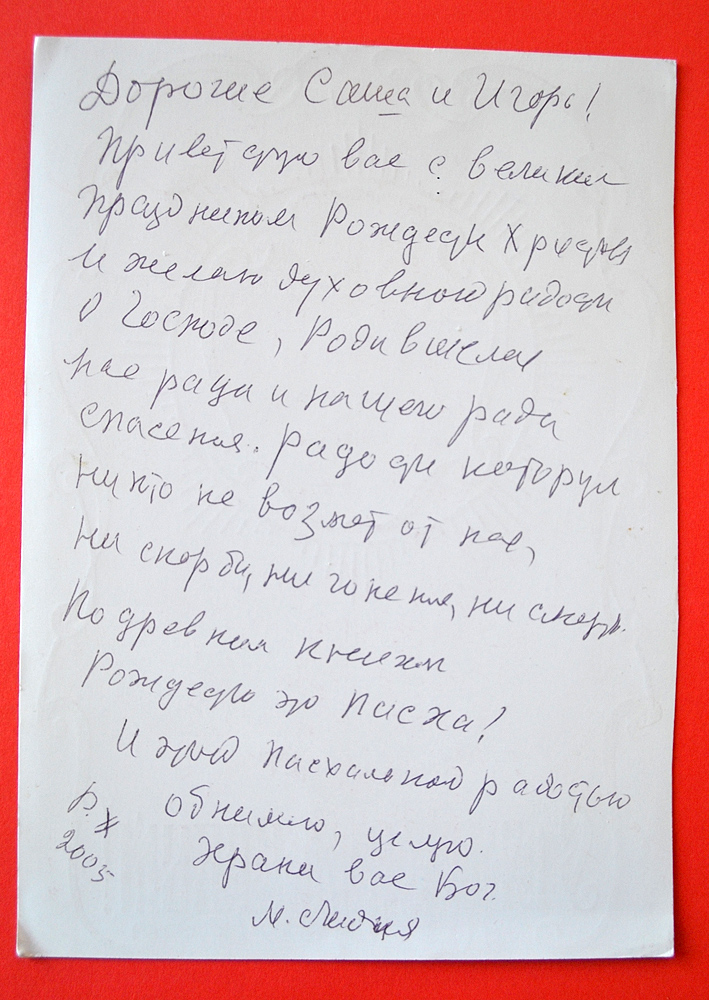 Дорогие Саша и Игорь!
Приветствую вас с великим
праздником Рождества Христова
и желаю духовной радости
о Господе, Родившемся
нас ради и нашего ради
спасения. Радости которую
никто не возмет от нас,
ни скорби, ни гонения, ни смерть.
По древним книгам
Рождество это Пасха!
И этой Пасхальной радостью
обнимаю, целую.
Храни вас Бог.
М.
Р. Х
2005